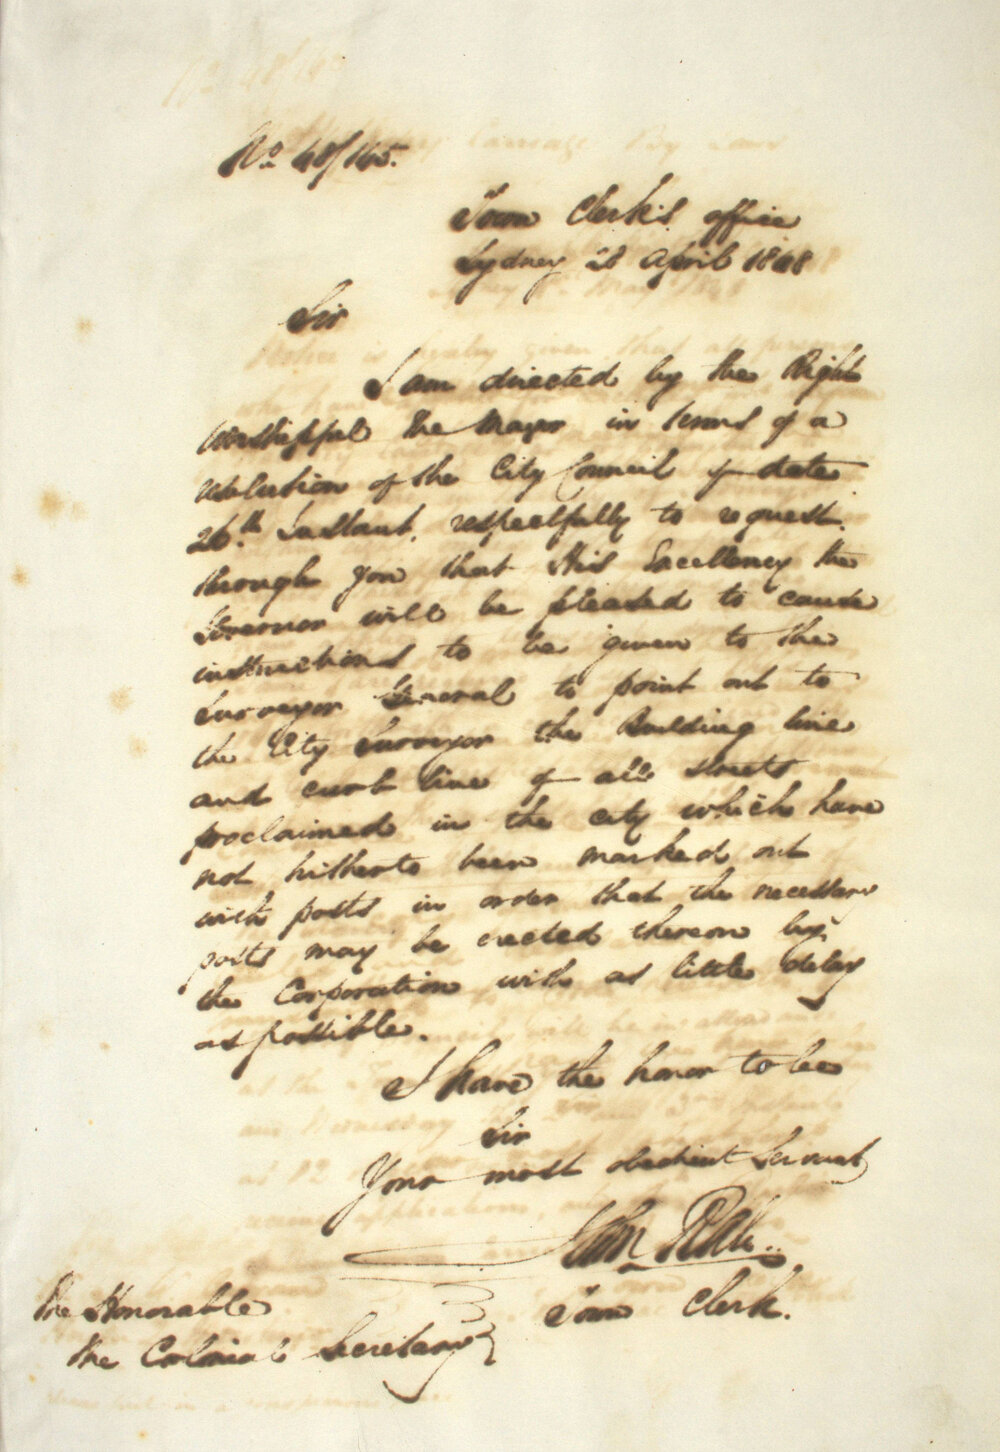 No 48/145.
Town Clerk's office
Sydney 28 April 1848
Sir
I am directed by the Right
Worshipful the Mayor in terms of a
resolution of the City Council of date
26th Instant, respectfully to request
through you that His Excellency the
Governor will be pleased to cause
instructions to be given to the
Surveyor General to point out to
the City Surveyor the Building line
and curb line of all streets
proclaimed in the city which have
not hitherto been marked out
with posts in order that the necessary
posts may be erected thereon by
the Corporation with as little delay
as possible.
I have the honor to be
Sir
Your most obedient Servant
John
Town Clerk.
The Honorable
the Colonial Secretary